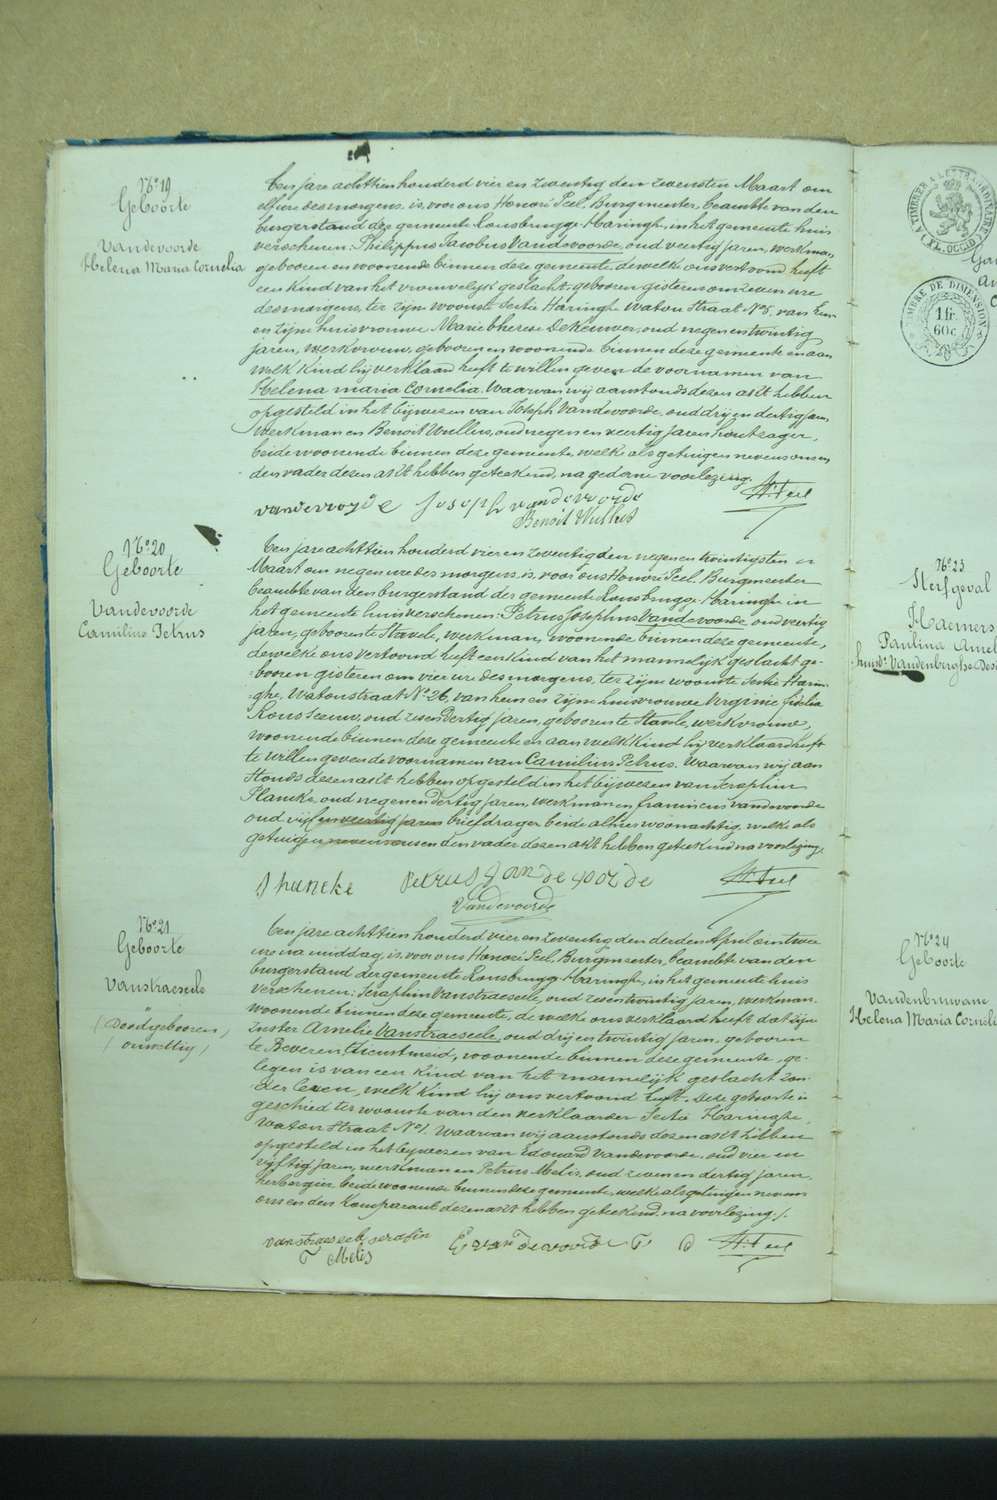 No 19
Geboorte
Vandevoorde
Helena Maria Cornelia
Een jare achttien honderd vier en zeventig den zevensten Maart om
elf ure des morgens, is, voor ons Honoré Feel, Burgmeester, beambte van den
burgerstand der gemeente Rousbrugge-Haringhe, in het gemeente huis
verschenen: Philippus Jacobus Vandevoorde, oud veertig jaren, werkman,
gebooren en woonende binnen deze gemeente, dewelke ons vertoond heeft
een kind van het vrouwelijk geslacht, gebooren gisteren om zeven ure
des morgens, ter zijne woonste Sectie Haringhe Watou Straat No 8, van hem
en zijne huisvrouwe Marie Therese DeKeuwer, oud negen en twintig
jaren, werkvrouw, gebooren en woonende binnen deze gemeente en aan
welk kind hij verklaard heeft te willen geven de voornamen van
Helena maria Cornelia. Waarvan wij aanstonds dezen akt hebben
opgesteld in het bijwezen van Joseph Vandevoorde, oud drij en dertig jaren,
werkman en Benoit Wullus, oud negen en veertig jaren houtzager,
beide woonende binnen deze gemeente welke als getuigen nevens ons en
den vader dezen akt hebben geteekend, na gedane voorlezing.
Joseph vandevoorde
Benoit Wullus
H. Feel
No 20
Geboorte
Vandevoorde
Camilius Petrus
Een jare achttien honderd vier en zeventig den negen en twintigsten
Maart om negen ure des morgens, is, voor ons Honoré Feel, Burgmeester
beambte van den burgerstand der gemeente Rousbrugge-Haringhe in
het gemeente huis verschenen: Petrus Josephus Vandevoorde, oud veertig
jaren, gebooren te Stavele, werkman, woonende binnen deze gemeente,
dewelke ons vertoond heeft een kind van het mannelijk geslacht ge-
booren gisteren om vier ure des morgens, ter zijne woonste Sectie Harin-
ghe, Watoustraat No 26, van hem en zijne huisvrouwe Virginie fidelia
Rousseeuw, oud zes en dertig jaren, gebooren te Stavele, werkvrouwe,
woonende binnen deze gemeente en aan welk kind hij verklaard heeft
te willen geven de voornamen van Camilius Petrus. Waarvan wij aan
stonds dezen akt hebben opgesteld in het bijwezen van Seraphin
Plancke, oud negen en dertig jaren, werkman en franciscus vandevoorde
oud vijf en veertig jaren briefdrager beide alhier woonachtig, welke als
getuigen nevens ons en den vader dezen akt hebben geteekend na voorlezing.
Vandevoorde
H. Feel
No 21
Geboorte
Vanstraeseele
(Doodgebooren)
(onwettig)
Een jare achttien honderd vier en zeventig den derden April om twee
ure na middag, is, voor ons Honoré Feel, Burgmeester, beambte van den
burgerstand der gemeente Rousbrugge-Haringhe, in het gemeente huis
verschenen: Seraphin Vanstraeseele, oud zes en twintig jaren, werkman
woonende binnen deze gemeente, de welke ons verklaard heeft dat zijne
zuster Amelie Vanstraeseele, oud drij en twintig jaren, gebooren
te Beveren, dienstmeid, woonende binnen deze gemeente, ge-
legen is van een kind van het mannelijk geslacht zon-
der leven, welk kind hij ons vertoond heeft. Deze geboorte is
geschied ter woonste van den verklaarder Sectie Haringhe,
watou Straat No 1. Waarvan wij aanstonds dezen akt hebben
opgesteld in het bijwezen van Edouard Vandevoorde, oud vier en
vijftig jaren, werkman en Petrus Melis, oud zeven en dertig jaren,
herbergier, beide woonende binnen deze gemeente, welke als getuigen nevens
ons en den Komparant dezen akt hebben geteekend, na voorlezing.
vanstraeseele serafin
E vandevoorde
Melis
H. Feel
TIMBRE DE DIMENSION
1 fr.
60 c.
No 23
Sterfgeval
Haemers
No 24
Geboorte
Helena Maria Corneli